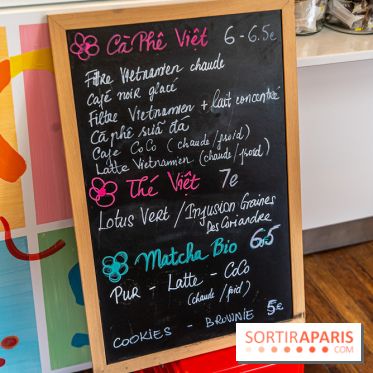 Cà Phê Việt 6-6.5€
Filtre Vietnamien chaude
Café noir glacé
Filtre Vietnamien + lait concentré
Cà phê suã đá
Cafe CoCo (chaude/froid)
Latte Vietnamien (chaude/froid)
Thé Việt 7e
Lotus Vert / Infusion Graines
Des Coriandre
Matcha Bio 6,5
Pur - Latte - CoCo
(chaude/froid)
COOKIES - BROWNIE 5€
SORTIRAPARIS
.COM